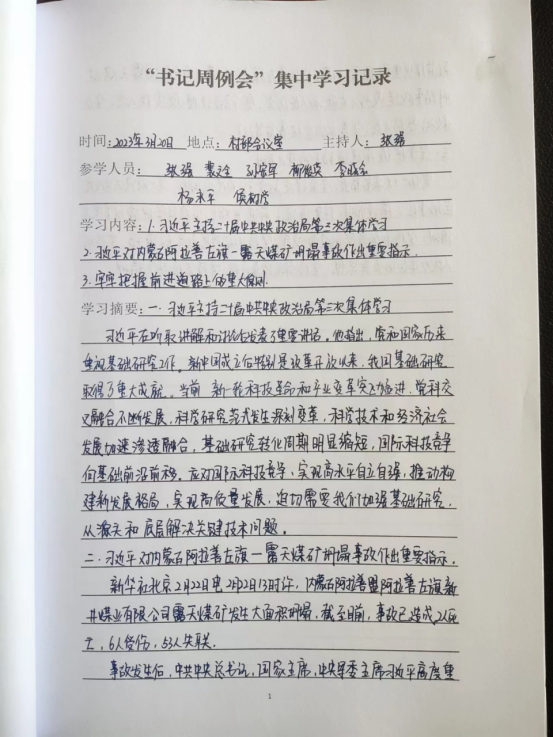 “书记周例会”集中学习记录
时间：2023年3月20日 地点：村部会议室 主持人：张强
参学人员： 张强 孙宝军
杨永平
学习内容：1.习近平主持二十届中共中央政治局第三次集体学习
2.习近平对内蒙古阿拉善左旗一露天煤矿坍塌事故作出重要指示.
3.牢牢把握前进道路上的重大原则.
学习摘要：一、习近平主持二十届中共中央政治局第三次集体学习
习近平在听取讲解和讨论后发表了重要讲话。他指出，党和国家历来
重视基础研究工作。新中国成立后特别是改革开放以来，我国基础研究
取得了重大成就。当前，新一轮科技革命和产业变革突飞猛进，学科交
叉融合不断发展，科学研究范式发生深刻变革，科学技术和经济社会
发展加速渗透融合，基础研究转化周期明显缩短，国际科技竞争
向基础前沿前移。应对国际科技竞争、实现高水平自立自强，推动构
建新发展格局，实现高质量发展，迫切需要我们加强基础研究，
从源头和底层解决关键技术问题。
二、习近平对内蒙古阿拉善左旗一露天煤矿坍塌事故作出重要指示.
新华社北京2月22日电 2月22日13时许，内蒙古阿拉善盟阿拉善左旗新
井煤业有限公司露天煤矿发生大面积坍塌，截至目前，事故已造成2人死
亡，6人受伤，53人失联.
事故发生后，中共中央总书记，国家主席，中央军委主席习近平高度重
1